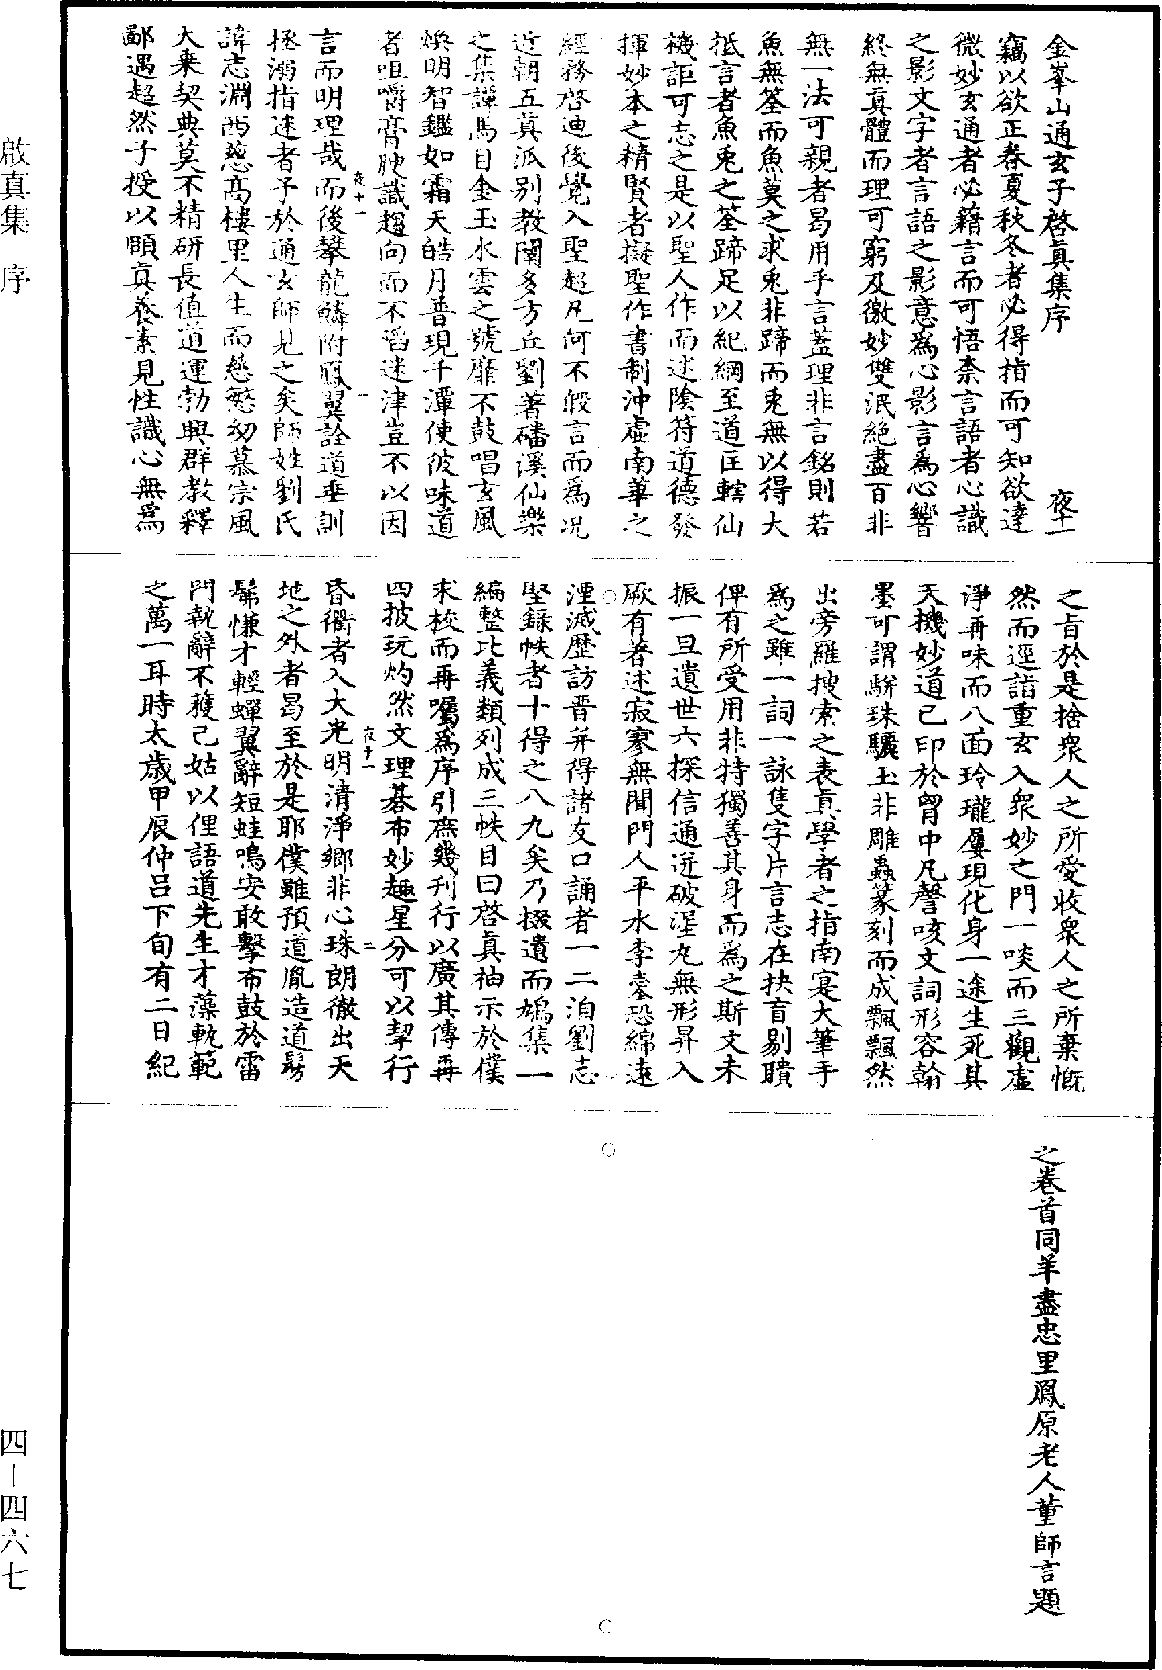 金峯山通玄子啓眞集序
夜十一
竊以欲正春夏秋冬者必得指而可知欲達
微妙玄通者必藉言而可悟柰言語者心識
之影文字者言語之影意爲心影言爲心響
終無眞體而理可窮及徼妙雙泯絶盡百非
無一法可親者曷用乎言蓋理非言銘則若
魚無筌而魚莫之求兎非蹄而兎無以得大
抵言者魚兎之筌蹄足以紀綱至道匡轄仙
機詎可忘之是以聖人作而述陰符道德發
揮妙本之精賢者擬聖作書制沖虛南華之
經務啓迪後覺入聖超凡何不假言而爲况
近朝五眞派别教闡多方丘劉著磻溪仙樂
之集譚馬目金玉水雲之號靡不鼓唱玄風
煥明智鑑如霜天皓月普現千潭使彼味道
者咀嚼膏腴識趨向而不滔迷津豈不以因
夜十一
一
言而明理哉而後攀龍鱗附鳳翼詮道垂訓
拯溺指迷者予於通玄師見之矣師姓劉氏
諱志淵西慈高樓里人生而慈慜幼慕宗風
大乗契典莫不精研長值道運勃興群教釋
鄙遇超然子授以頤眞養素見性識心無爲
之旨於是捨衆人之所愛收衆人之所棄慨
然而逕詣重玄入衆妙之門一啖而三觀虛
淨再味而八面玲瓏屢現化身一途生死其
天機妙道已印於胷中凡謦咳文詞形容翰
墨可謂駢珠驪玉非雕蟲篆刻而成飄飄然
出旁羅搜索之表眞學者之指南寔大筆手
爲之雖一詞一詠隻字片言志在抉盲剔聵
俾有所受用非特獨善其身而爲之斯文未
振一旦遺世六探信通迸破渥丸無形昇入
厥有著述寂寥無聞門人平水李𡩋恐綿遠
湮滅歷訪晋并得諸友口誦者一二洎劉志
堅録帙者十得之八九矣乃掇遺而鳩集一
編整比義類列成三帙目曰啓眞袖示於僕
求校而再囑爲序引庶幾刊行以廣其傳再
四披玩灼然文理碁布妙趣星分可以挈行
夜十一
二
昏衢者入大光明清淨鄉非心珠朗徹出天
地之外者曷至於是耶僕雖預道胤造道髣
髴慊才輕蟬翼辭短蛙鳴安敢擊布鼓於雷
門執辭不穫已姑以俚語道先生才藻軌範
之萬一耳時太歲甲辰仲呂下旬有二日紀
之卷首同羊盡忠里鳳原老人董師言題
啟真集　序
四—四六七